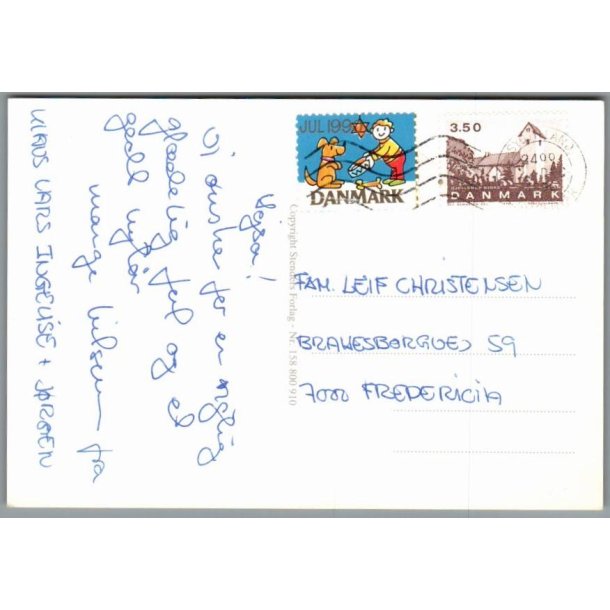 Hejsa!
Vi ønsker jer en rigtig
glædelig jul og et
godt nytår
mange hilsner fra
KLAUS LARS INGELISE + JØRGEN
JUL 199
DANMARK
3.50
DANMARK
Copyright Stenders Forlag - Nr. 158 800 910
FAM. LEIF CHRISTENSEN
59
7000 FREDERICIA